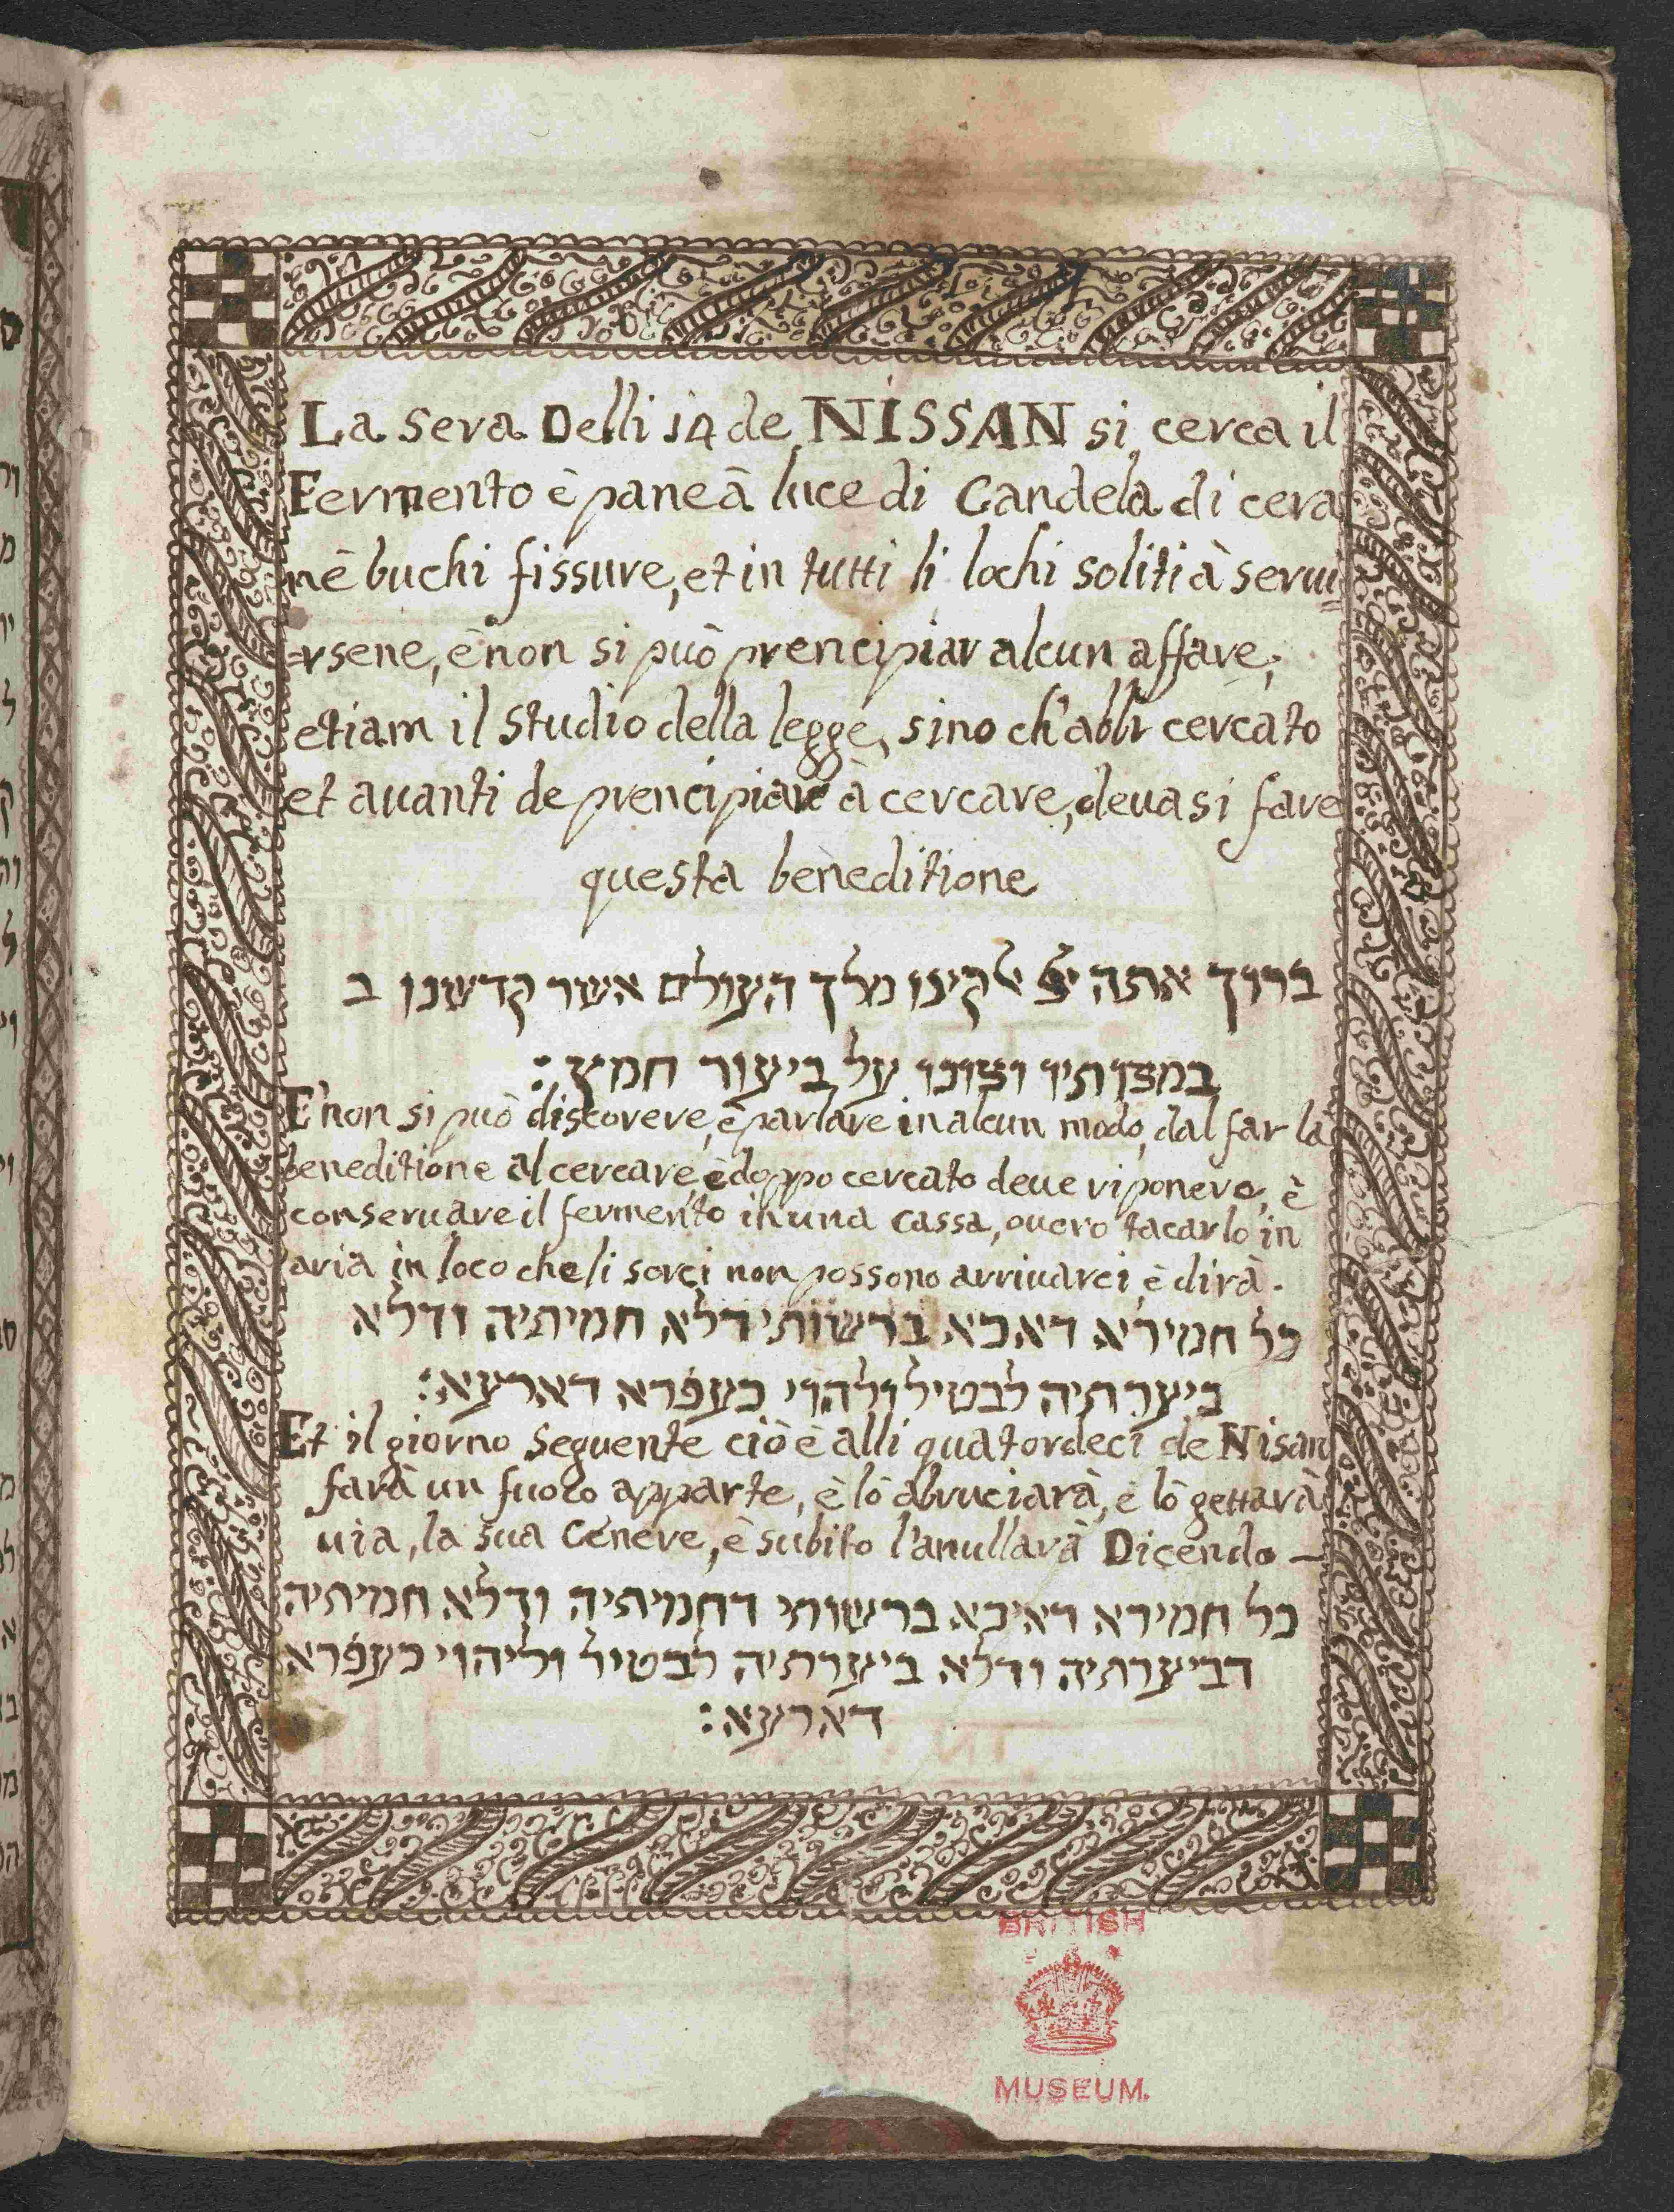 La Sera Delli 14 de NISSAN si cerca il
Fermento è pane â luce di Candela di cera
nè buchi fissure, et in tutti li lochi soliti à serui=
=rsene, è non si può prencipiar alcun affare,
etiam il studio della legge, sino ch'abbi cercato
et auanti de prencipiare à cercare, deuasi fare
questa beneditione
ברוך אתה יי אלקינו מלך העולם אשר קדשנו ב
במצותיו וצונו על ביעור חמץ:
E non si può discorere, è parlare in alcun modo, dal far la
beneditione al cercare, è doppo cercato deue riponere, è
conseruare il fermento in una cassa, ouero tacarlo in
aria in loco che li sorci non possono arriuarci, è dirà.
כל חמירא דאכא ברשותי דלא חמיתיה ודלא
ביערתיה לבטיל ולהוי כעפרא דארעא:
Et il giorno seguente cioè alli quatordeci de Nisan
farà un fuoco apparte, è lo abruciarà, è lo gettarà
uia, la sua Cenere, è subito l'anullarà Dicendo —
כל חמירא דאיכא ברשותי דחמיתיה ודלא חמיתיה
דביערתיה ודלא ביערתיה לבטיל וליהוי כעפרא
דארעא:
BRITISH
MUSEUM.